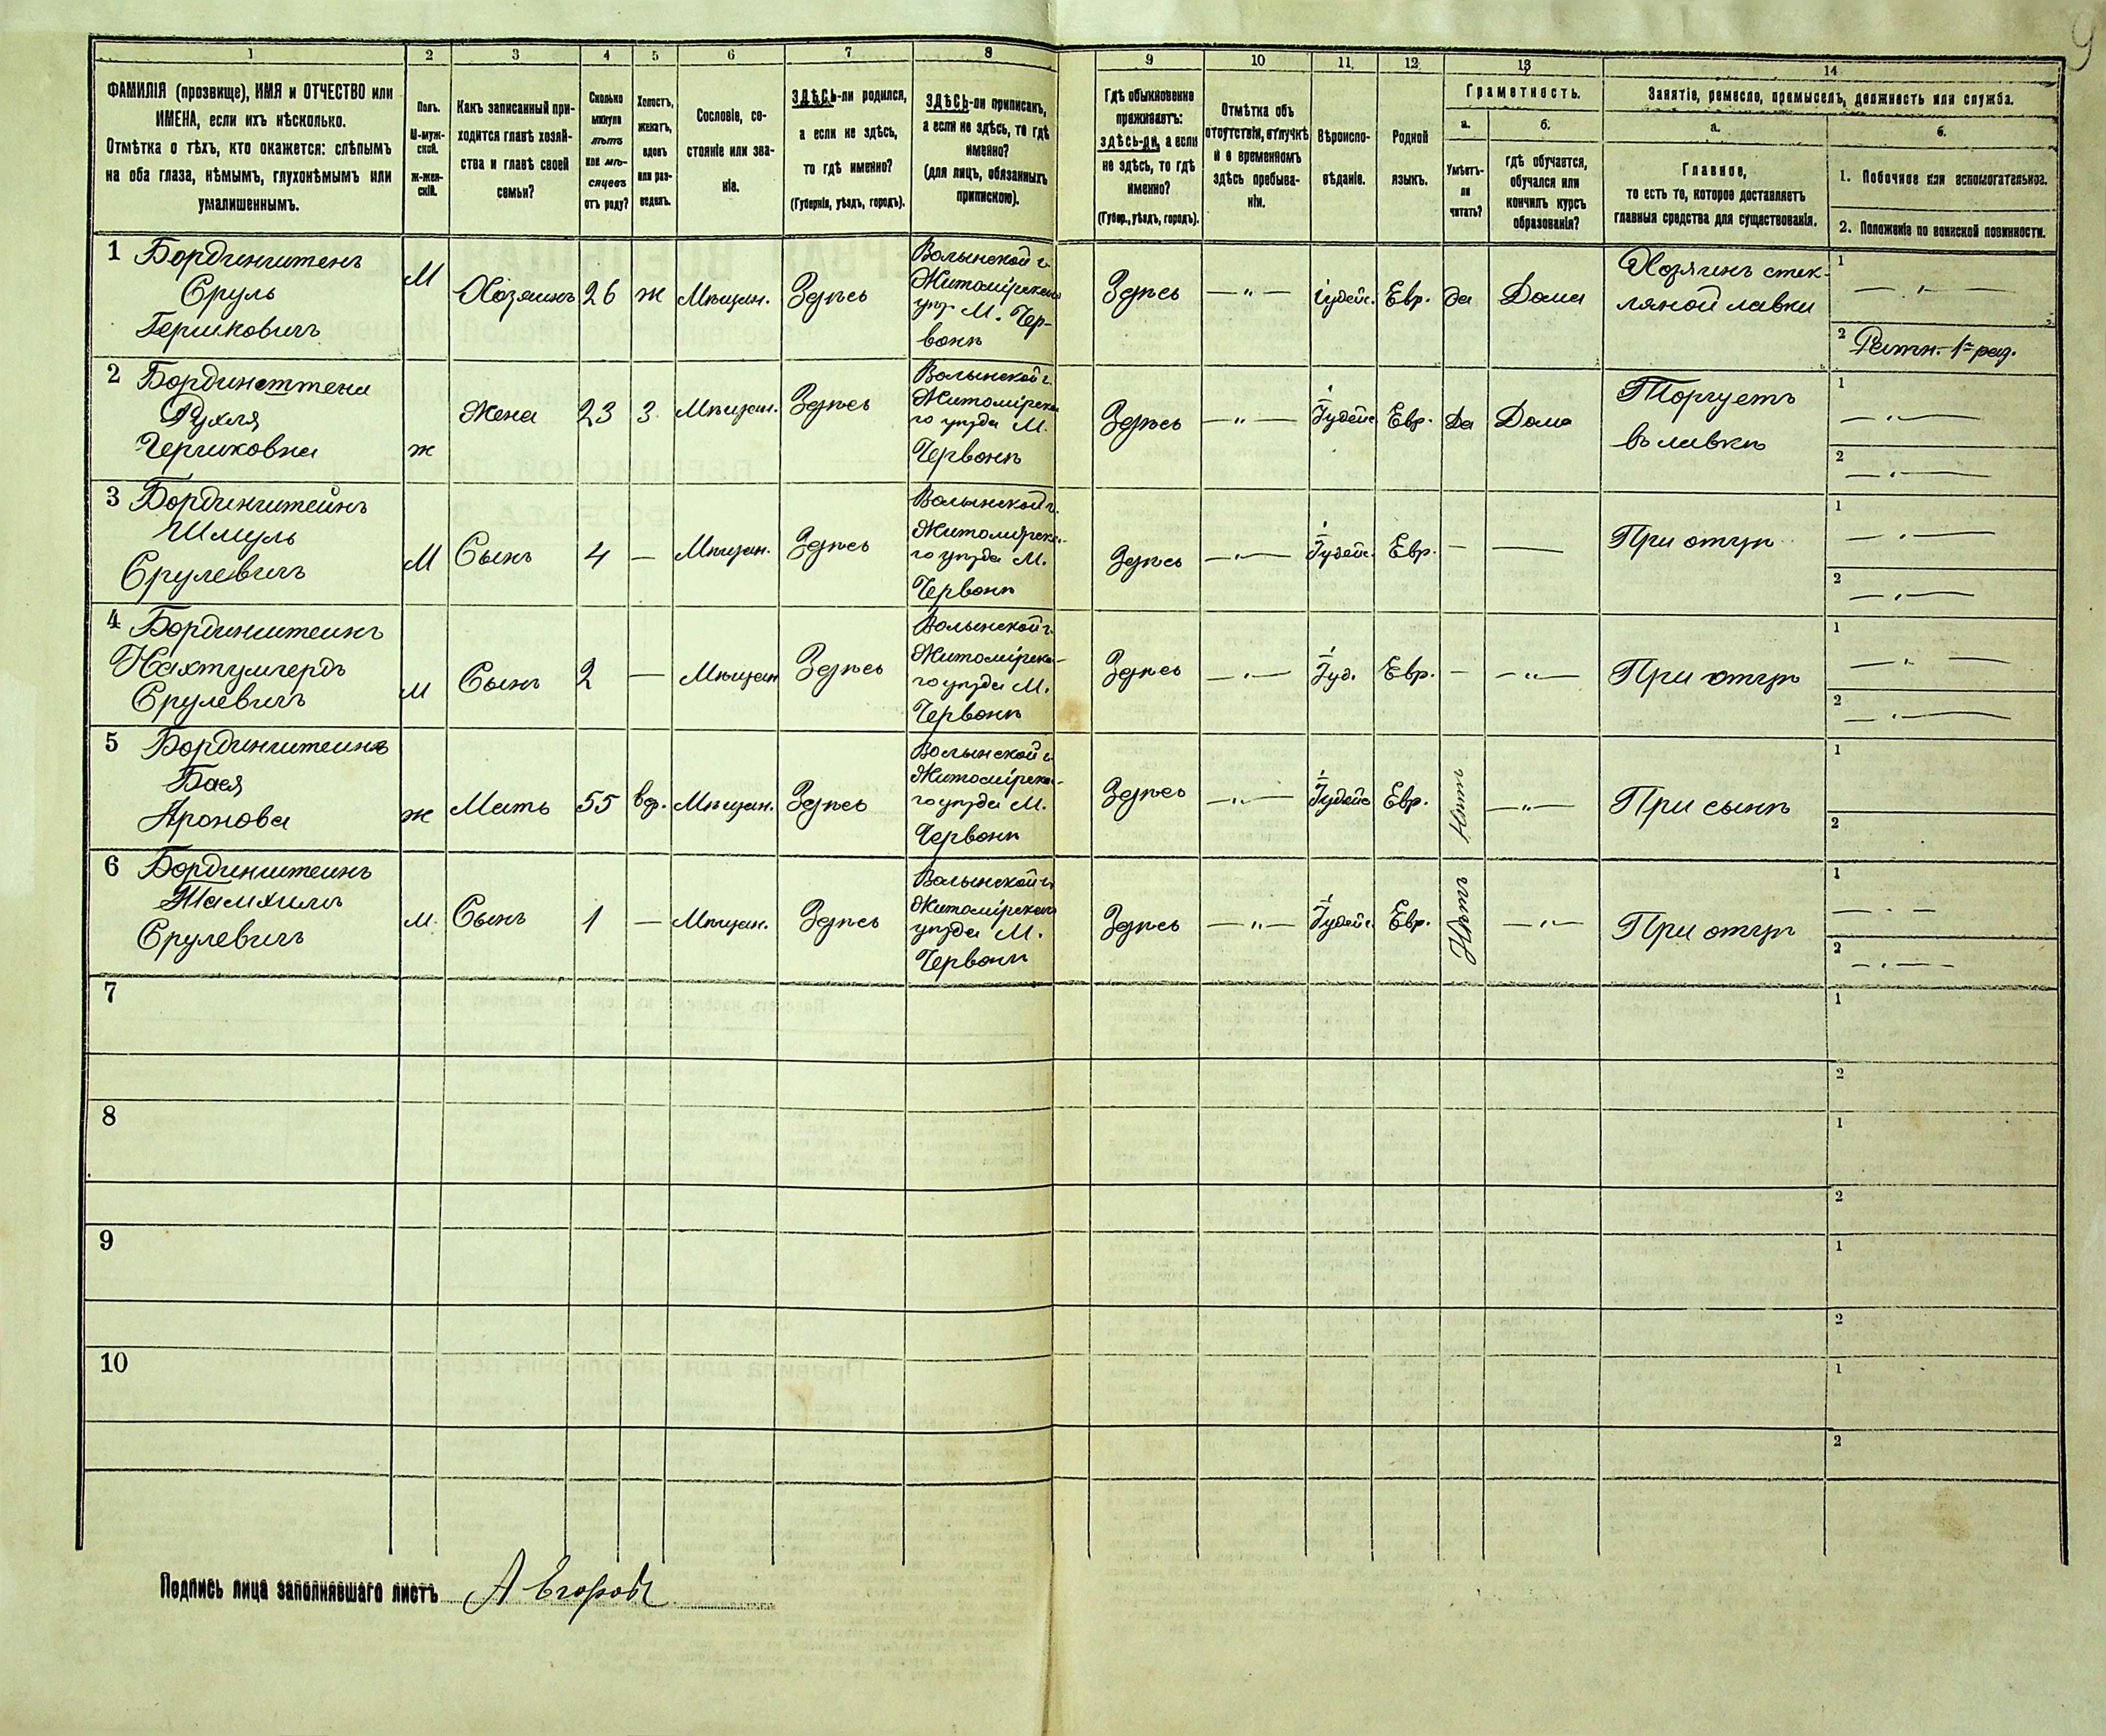 9
1 2 3 4 5 6 7 8 9 10 11 12 13 14
ФАМИЛІЯ (прозвище), ИМЯ и ОТЧЕСТВО или
ИМЕНА, если ихъ нѣсколько.
Отмѣтка о тѣхъ, кто окажется: слѣпымъ
на оба глаза, нѣмымъ, глухонѣмымъ или
умалишеннымъ.
Полъ.
М-муж-
ской.
ж-жен-
скій.
Какъ записанный при-
ходится главѣ хозяй-
ства и главѣ своей
семьи?
Сколько
минуло
лѣтъ
или мѣ-
сяцевъ
отъ роду?
Холостъ,
женатъ,
вдовъ
или раз-
веденъ.
Сословіе, со-
стояніе или зва-
ніе.
ЗДѢСЬ-ли родился,
а если не здѣсь,
то гдѣ именно?
(Губернія, уѣздъ, городъ).
ЗДѢСЬ-ли приписанъ,
а если не здѣсь, то гдѣ
именно?
(для лицъ, обязанныхъ
припискою).
Гдѣ обыкновенно
проживаетъ:
здѣсь-ли, а если
не здѣсь, то гдѣ
именно?
(Губер., уѣздъ, городъ).
Отмѣтка объ
отсутствіи, отлучкѣ
и о временномъ
здѣсь пребыва-
ніи.
Вѣроиспо-
вѣданіе.
Родной
языкъ.
Грамотность.
а.
Умѣетъ-
ли
читать?
б.
гдѣ обучается,
обучался или
кончилъ курсъ
образованія?
Занятіе, ремесло, промыселъ, должность или служба.
а.
Главное,
то есть то, которое доставляетъ
главныя средства для существованія.
б.
1. Побочное или вспомогательное.
2. Положеніе по воинской повинности.
1 Бординштенъ
Сруль
Гершковичъ
М
Хозяинъ
26
ж
Мѣщан.
Здѣсь
Волынской г.
Житомірскаго
уѣз. М. Чер-
вонѣ
Здѣсь
— " —
іудейс.
Евр.
да
Дома
Хозяинъ стек-
ляной лавки
1 — " —
2 Ратн. 1го раз.
2 Бординсттена
Рухля
Гершковна
ж
Жена
23
З.
Мѣщан.
Здѣсь
Волынской г.
Житомірска
го уѣзда М.
Червонѣ
Здѣсь
— " —
Іудейс
Евр.
Да
Дома
Торгуетъ
въ лавкѣ
1 — " —
2 — " —
3 Бординштейнъ
Шмуль
Срулевичъ
М
Сынъ
4
—
Мѣщан.
Здѣсь
Волынской г.
Житомірска-
го уѣзда М.
Червонѣ
Здѣсь
— " —
Іудейс.
Евр.
—
—
При отцѣ
1 — " —
2 — " —
4 Бординштеинъ
Нахтумгердъ
Срулевичъ
м
Сынъ
2
—
Мѣщан
Здѣсь
Волынской г.
Житомірска-
го уѣзда М.
Червонѣ
Здѣсь
— " —
Іуд.
Евр.
—
— " —
При отцѣ
1 — " —
2 — " —
5 Бординштеина
Бася
Аронова
ж
Мать
55
вд.
Мѣщан.
Здѣсь
Волынской г.
Житомірска-
го уѣзда М.
Червонѣ
Здѣсь
— " —
Іудейс
Евр.
Нѣтъ
— " —
При сынѣ
1
2
6 Бординштеинъ
Срулевичъ
м.
Сынъ
1
—
Мѣщан.
Здѣсь
Волынской г.
Житомірскаго
уѣзда М.
Червонѣ
Здѣсь
— " —
Іудейс.
Евр.
Нѣтъ
— " —
При отцѣ
1 — " —
2 — " —
7
1
2
8
1
2
9
1
2
10
1
2
Подпись лица заполнявшаго листъ